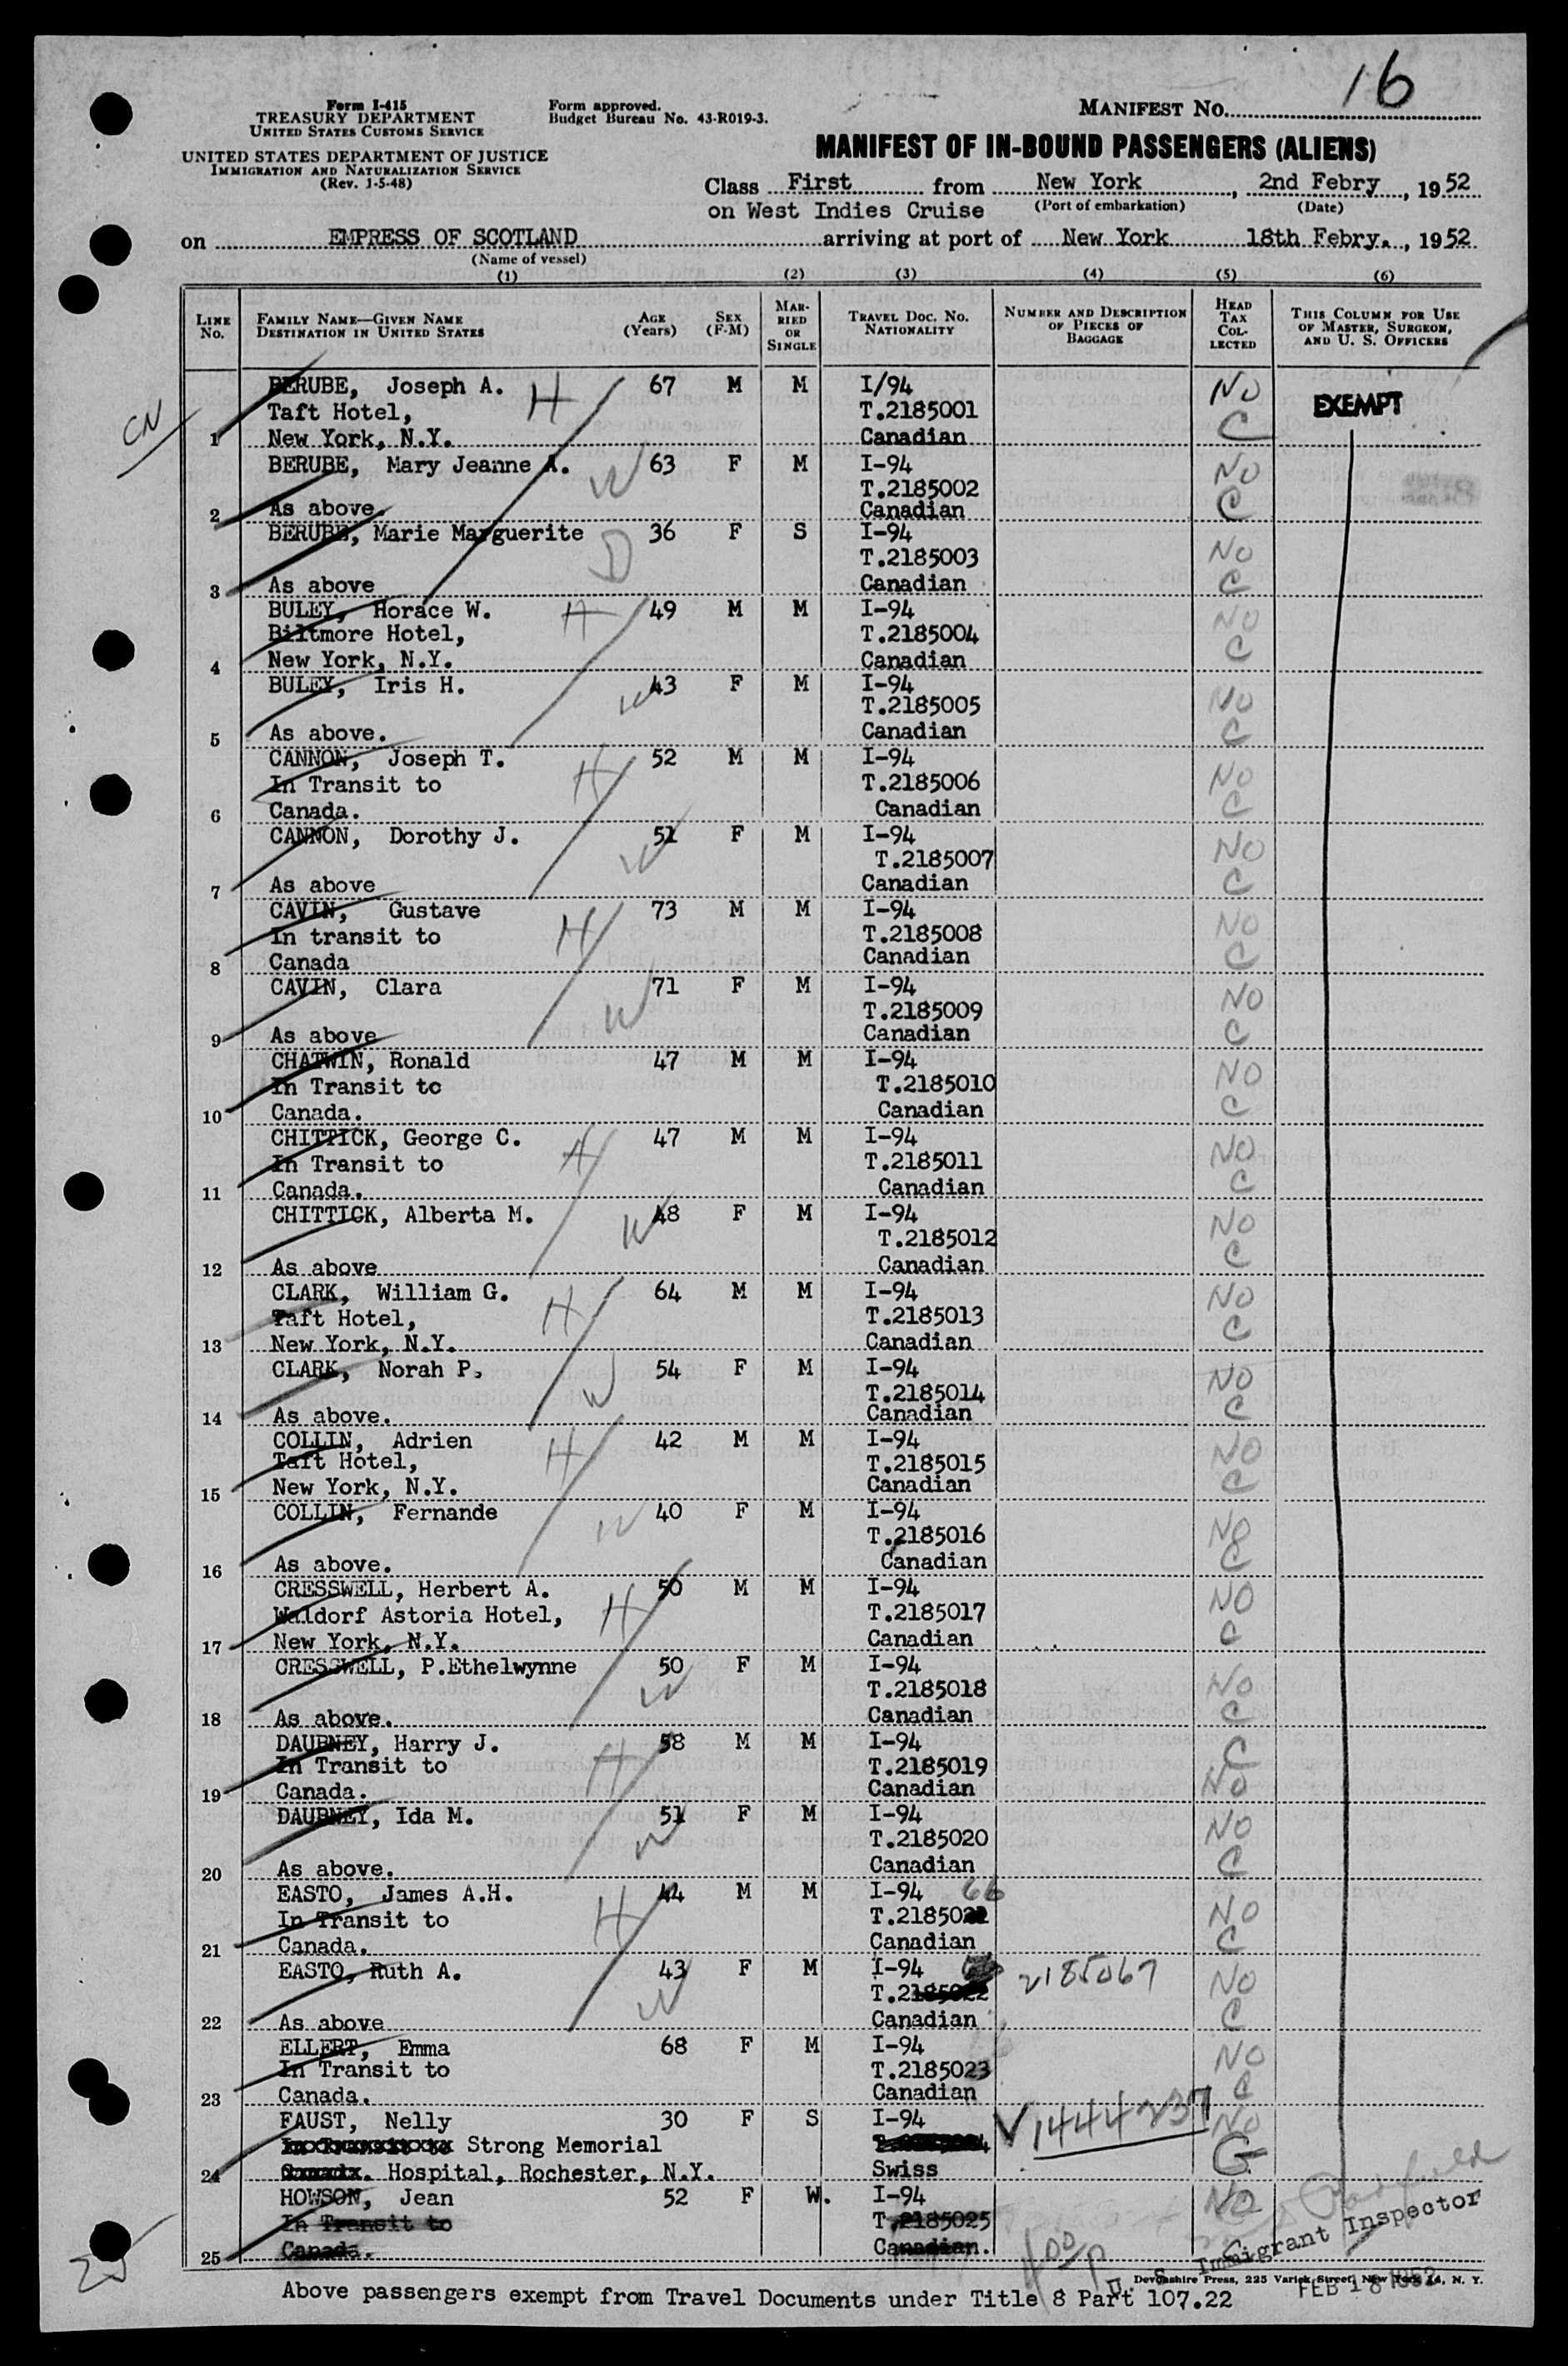 16
Form I-415
TREASURY DEPARTMENT
UNITED STATES CUSTOMS SERVICE
UNITED STATES DEPARTMENT OF JUSTICE
IMMIGRATION AND NATURALIZATION SERVICE
(Rev. 1-5-48)
Form approved.
Budget Bureau No. 43-R019-3.
MANIFEST NO.
MANIFEST OF IN-BOUND PASSENGERS (ALIENS)
Class First from New York, 2nd Febry, 1952
on West Indies Cruise (Port of embarkation) (Date)
on EMPRESS OF SCOTLAND arriving at port of New York 18th Febry., 1952
(Name of vessel)
(1) (2) (3) (4) (5) (6)
LINE No. FAMILY NAME—GIVEN NAME DESTINATION IN UNITED STATES AGE (Years) SEX (F-M) MARRIED OR SINGLE TRAVEL DOC. NO. NATIONALITY NUMBER AND DESCRIPTION OF PIECES OF BAGGAGE HEAD TAX COLLECTED THIS COLUMN FOR USE OF MASTER, SURGEON, AND U. S. OFFICERS
BERUBE, Joseph A. H 67 M M I/94 No EXEMPT
CN Taft Hotel, T.2185001 C
1 New York, N.Y. Canadian
BERUBE, Mary Jeanne A. W 63 F M I-94 No
T.2185002 C
2 As above. Canadian
BERUBE, Marie Marguerite D 36 F S I-94 No
T.2185003
3 As above Canadian C
BULEY, Horace W. H 49 M M I-94 No
Biltmore Hotel, T.2185004 C
4 New York, N.Y. Canadian
BULEY, Iris H. W 43 F M I-94 No
T.2185005
5 As above. Canadian C
CANNON, Joseph T. H 52 M M I-94 No
In Transit to T.2185006
6 Canada. Canadian C
CANNON, Dorothy J. W 51 F M I-94 No
T.2185007
7 As above Canadian C
CAVIN, Gustave H 73 M M I-94 No
In transit to T.2185008
8 Canada Canadian C
CAVIN, Clara W 71 F M I-94 No
T.2185009
9 As above Canadian C
CHATWIN, Ronald 47 M M I-94 No
In Transit to T.2185010
10 Canada. Canadian C
CHITTICK, George C. H 47 M M I-94 No
In Transit to T.2185011
11 Canada. Canadian C
CHITTICK, Alberta M. W 48 F M I-94 No
T.2185012
12 As above Canadian C
CLARK, William G. H 64 M M I-94 No
Taft Hotel, T.2185013
13 New York, N.Y. Canadian C
CLARK, Norah P. W 54 F M I-94 No
T.2185014
14 As above. Canadian C
COLLIN, Adrien H 42 M M I-94 No
Taft Hotel, T.2185015
15 New York, N.Y. Canadian C
COLLIN, Fernande W 40 F M I-94 No
T.2185016
16 As above. Canadian C
CRESSWELL, Herbert A. H 50 M M I-94 No
Waldorf Astoria Hotel, T.2185017
17 New York, N.Y. Canadian C
CRESSWELL, P.Ethelwynne W 50 F M I-94 No
T.2185018
18 As above. Canadian C
DAUBNEY, Harry J. H 58 M M I-94 C
In Transit to T.2185019
19 Canada. Canadian No
DAUBNEY, Ida M. W 51 F M I-94 No
T.2185020
20 As above. Canadian C
EASTO, James A.H. H 44 M M I-94 66 No
In Transit to T.21850
21 Canada. Canadian C
EASTO, Ruth A. W 43 F M I-94 2185067 No
T.2185022
22 As above Canadian C
ELLERT, Emma 68 F M I-94 No
In Transit to T.2185023
23 Canada. Canadian C
FAUST, Nelly 30 F S I-94 V1444237 No
Strong Memorial G
24 Hospital, Rochester, N.Y. Swiss
HOWSON, Jean 52 F W. I-94 No
In Transit to T.2185025
25 Canada. Canadian. C
25 400 p U. S. Immigrant Inspector
Devonshire Press, 225 Varick Street, New York 14, N. Y.
FEB 18 1952
Above passengers exempt from Travel Documents under Title 8 Part 107.22